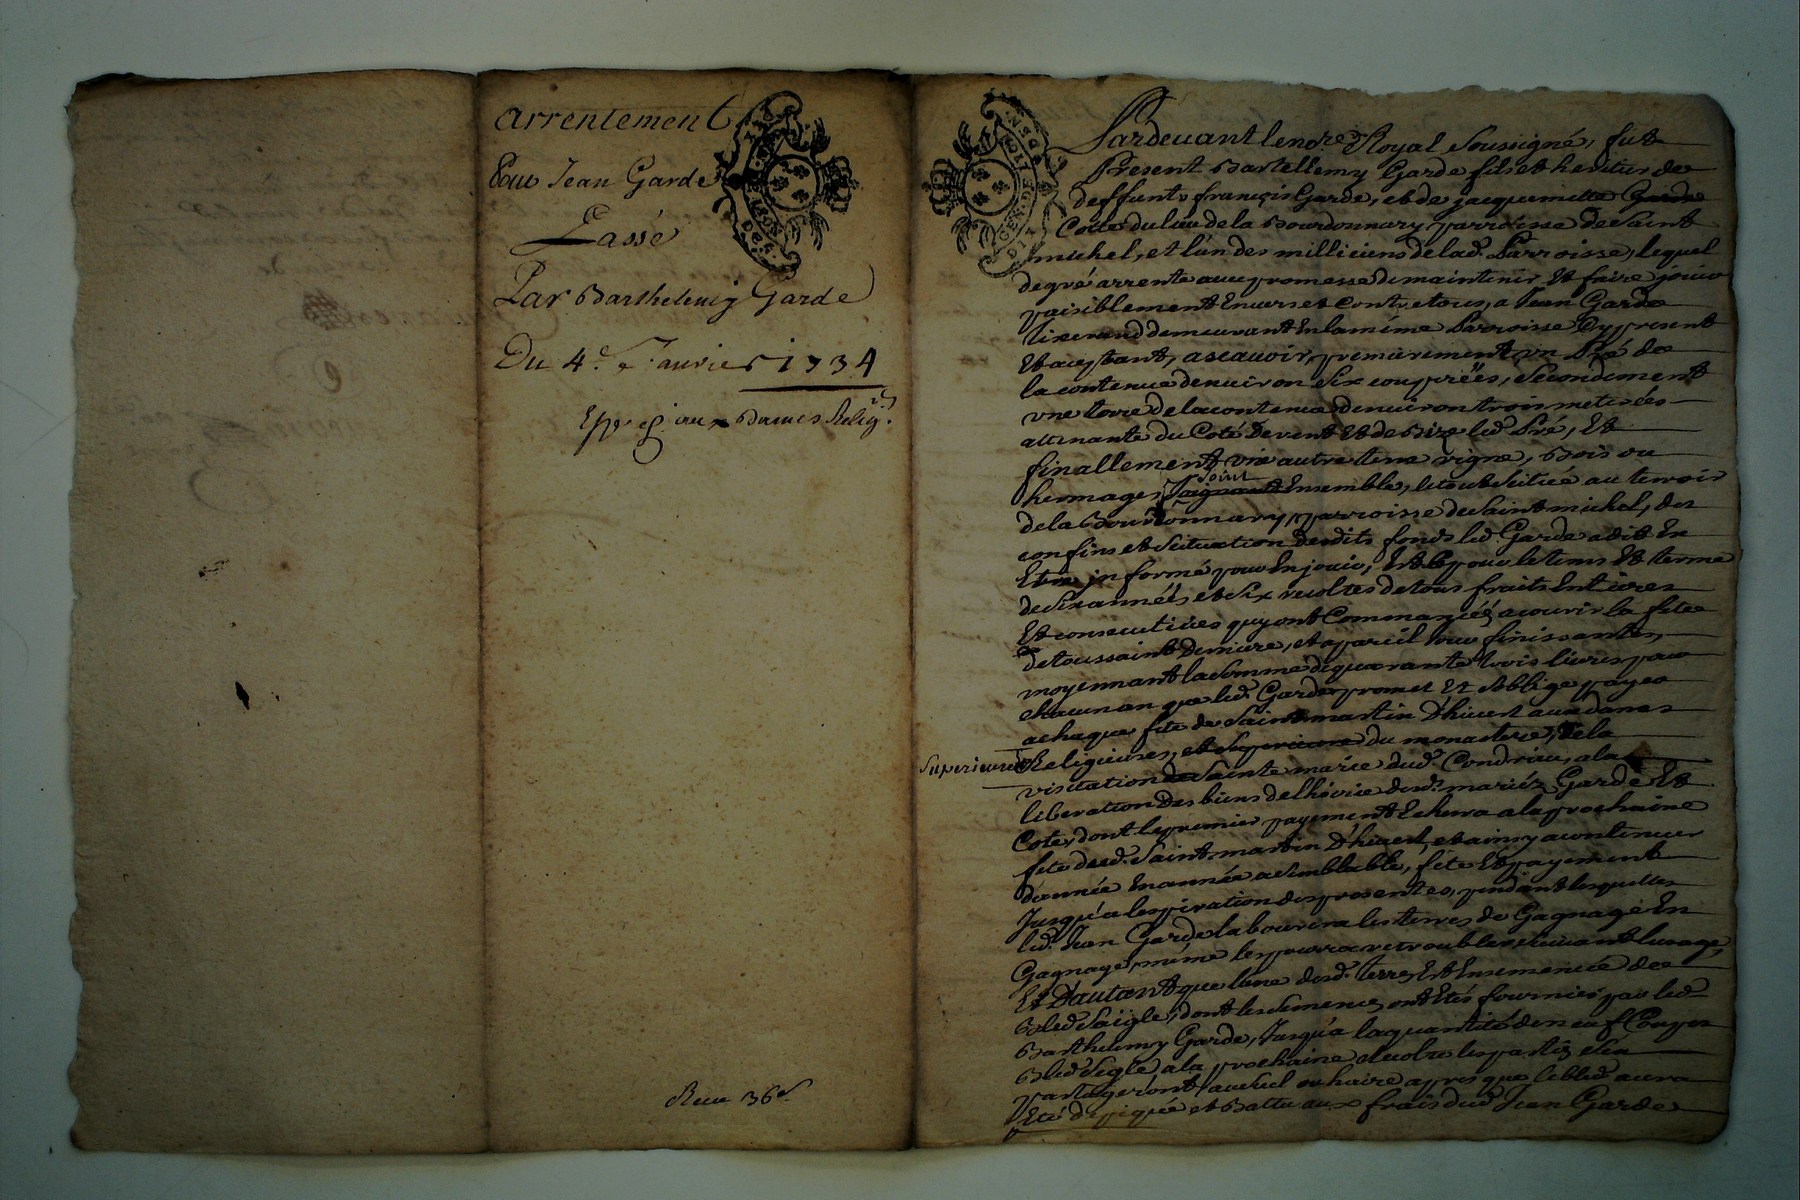 arrentement
Pour Jean Garde
Passé
Par Barthelemy Garde
Du 4.e Janvier 1734
Exp. aux Dames Relig.
Receu 36 s.
GEN. DE
Pardevant le no.re Royal soussigné, fut
Present Bartellemy Garde fils et heritier de
deffunts françois Garde, et de jacquemette
Cotte du lieu de la Bourdonnary parroisse de Saint
michel, et l'un des milliciens de lad. Parroisse, lequel
de gré arrente avec promesse de maintenir et faire jouir
paisiblement envers et contre tous, a Jean Garde
tixerand demeurant en la méme Parroisse cy present
et aceptant, ascavoir, premierement un Pré de
la contenue denviron six couppëes, secondement
une terre de la contenue denviron trois meterées
attenante du Coté de vent et de Bize led. Pré, et
finallement une autre terre vigne, Bois ou
hermages, joint ensemble, le tout scitué au terroir
de la Bourdonnary, parroisse de Saint michel, des
confins et scituation desdits fonds led. Garde a dit en
Etre jnformé pour en jouir, et ce pour le tems et terme
de six années et six recoltes de tous fruits entieres
et consecutives quy ont Commancéés a courir la féte
de toussaint derniere, et a pareil jour finissantes,
moyennant la somme de quarante trois livres pour
chacun an que led. Garde promet et s'obblige payer
a chaque féte de Saint martin D'hiver aux Dames
superieure Religieuses, et superieure du monastere, de la
visitation de Sainte marie dud. Condrieu, a la
liberation des biens de l'hoirie desd. mariéz Garde et
Cote, dont le premier payement Echerra a la prochaine
féte dud. Saint martin D'hiver, et ainsy a continuer
d'année en année a semblable, féte et payement
Jusqu'a lexpiration des presentes, pendant lesquelles
led. Jean Garde labourera les terres de Gagnage en
Gagnage, méme les pourra retroubler suivant lusage,
Et D'autant que l'une desd. terres est ensemencée de
Bled Saigle, dont les semences ont étés fournies par led.
Barthelemy Garde, Jusqu'a la quantité de neuf Coupes
Bled Segle, a la prochaine recolte les partis s'en
partageront au seul ou haire apres que le bled aura
Eté depiqué et Battu aux frais dud. Jean Garde